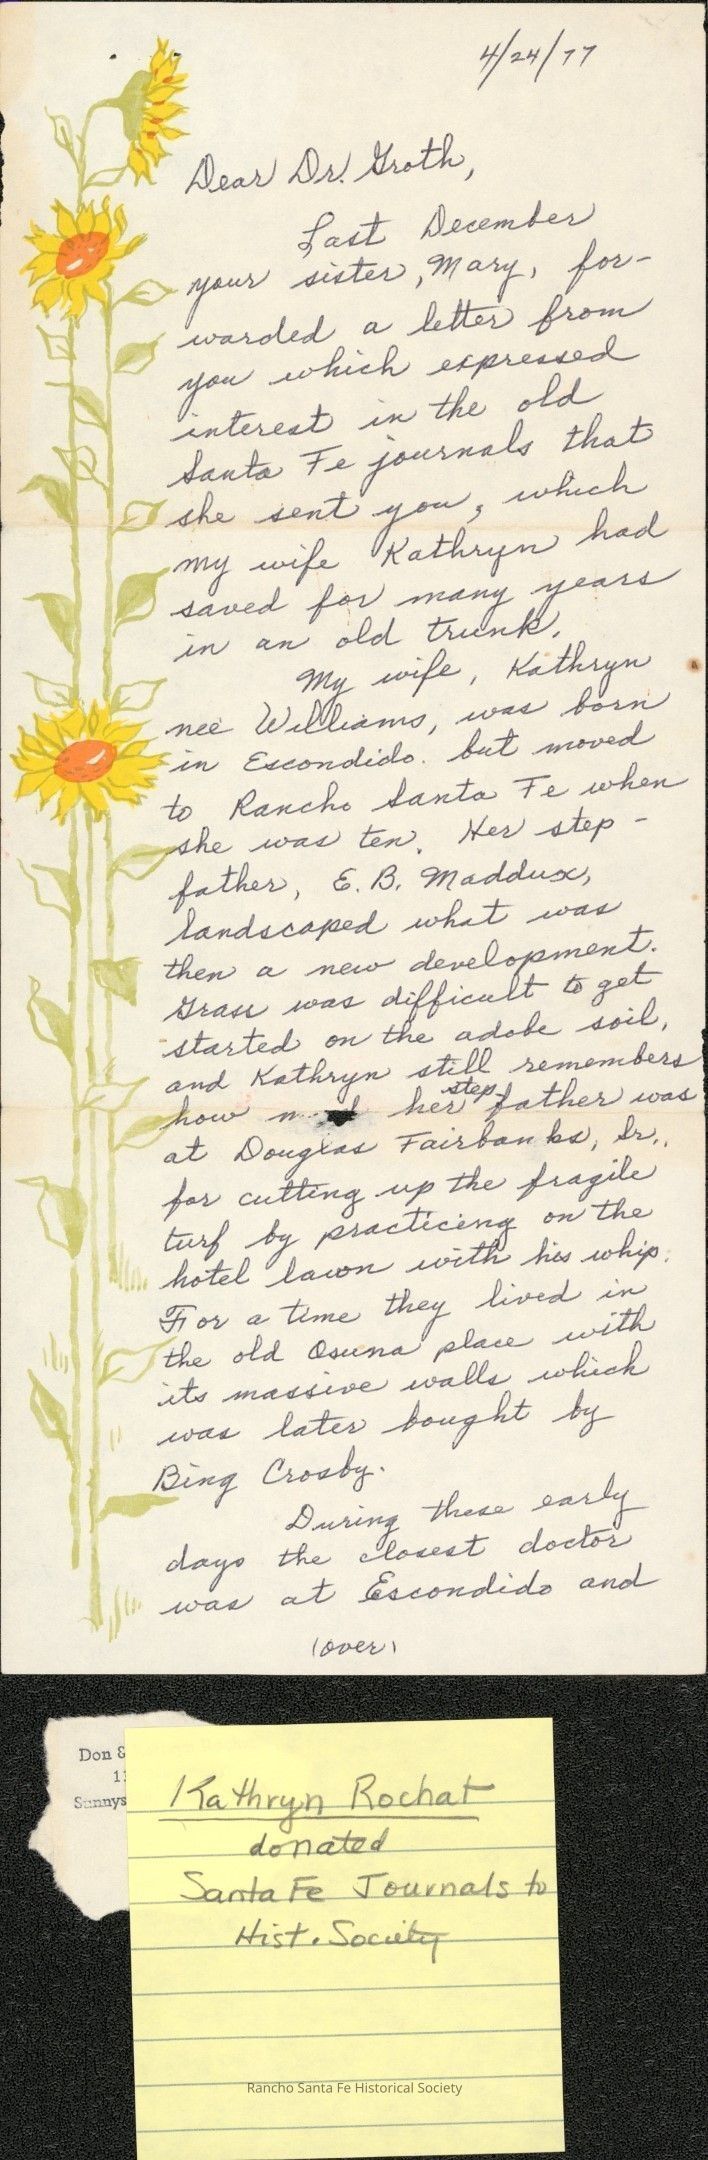 4/24/77
Dear Dr. Groth,
Last December
your sister, Mary, for-
warded a letter from
you which expressed
interest in the old
Santa Fe journals that
she sent you, which
my wife Kathryn had
saved for many years
in an old trunk.
My wife, Kathryn
nee Williams, was born
in Escondido. but moved
to Rancho Santa Fe when
she was ten. Her step-
father, E. B. Maddux,
landscaped what was
then a new development.
Grass was difficult to get
started on the adobe soil,
and Kathryn still remembers
how her step-father was
at Douglas Fairbanks, Sr.,
for cutting up the fragile
turf by practicing on the
hotel lawn with his whip.
For a time they lived in
the old Osuna place with
its massive walls which
was later bought by
Bing Crosby.
During these early
days the closest doctor
was at Escondido and
(over)
Don &
11
Sunnys
Kathryn Rochat
donated
Santa Fe Journals to
Hist. Society
Rancho Santa Fe Historical Society